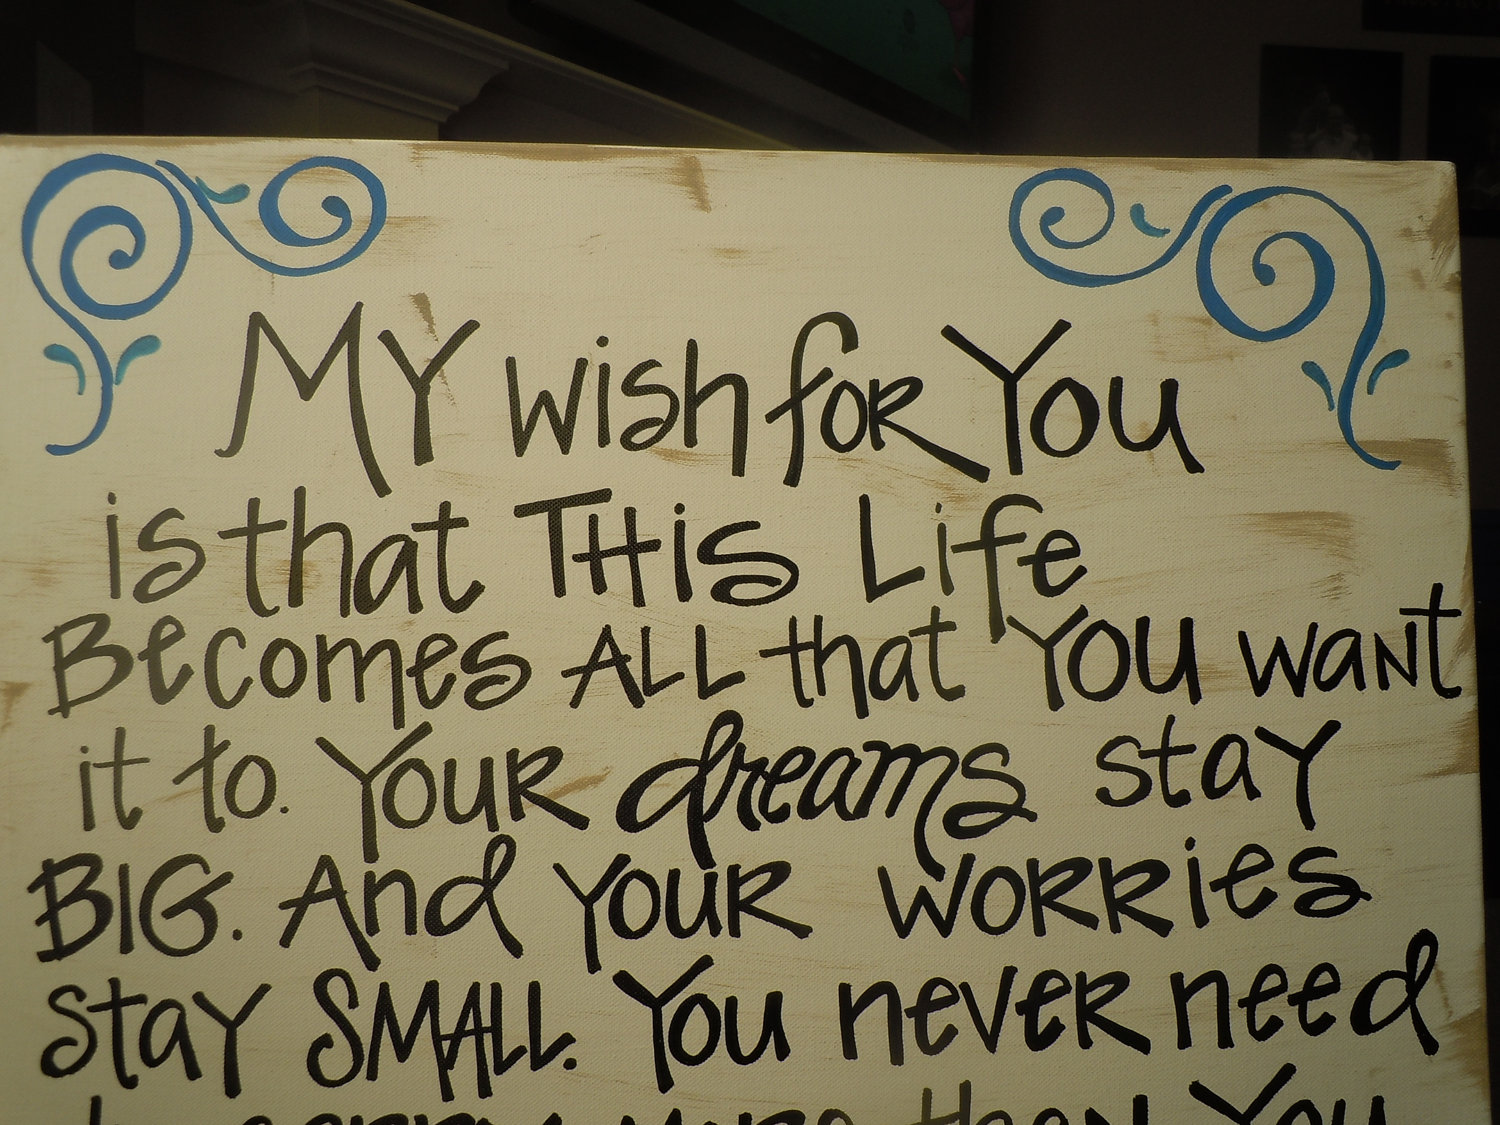 MY wish for You
is that THis Life
Becomes ALL that YOU waNt
it to. YOUR dreams stay
BIG. And YOUR WORRies
stay SMALL. You never need
than You